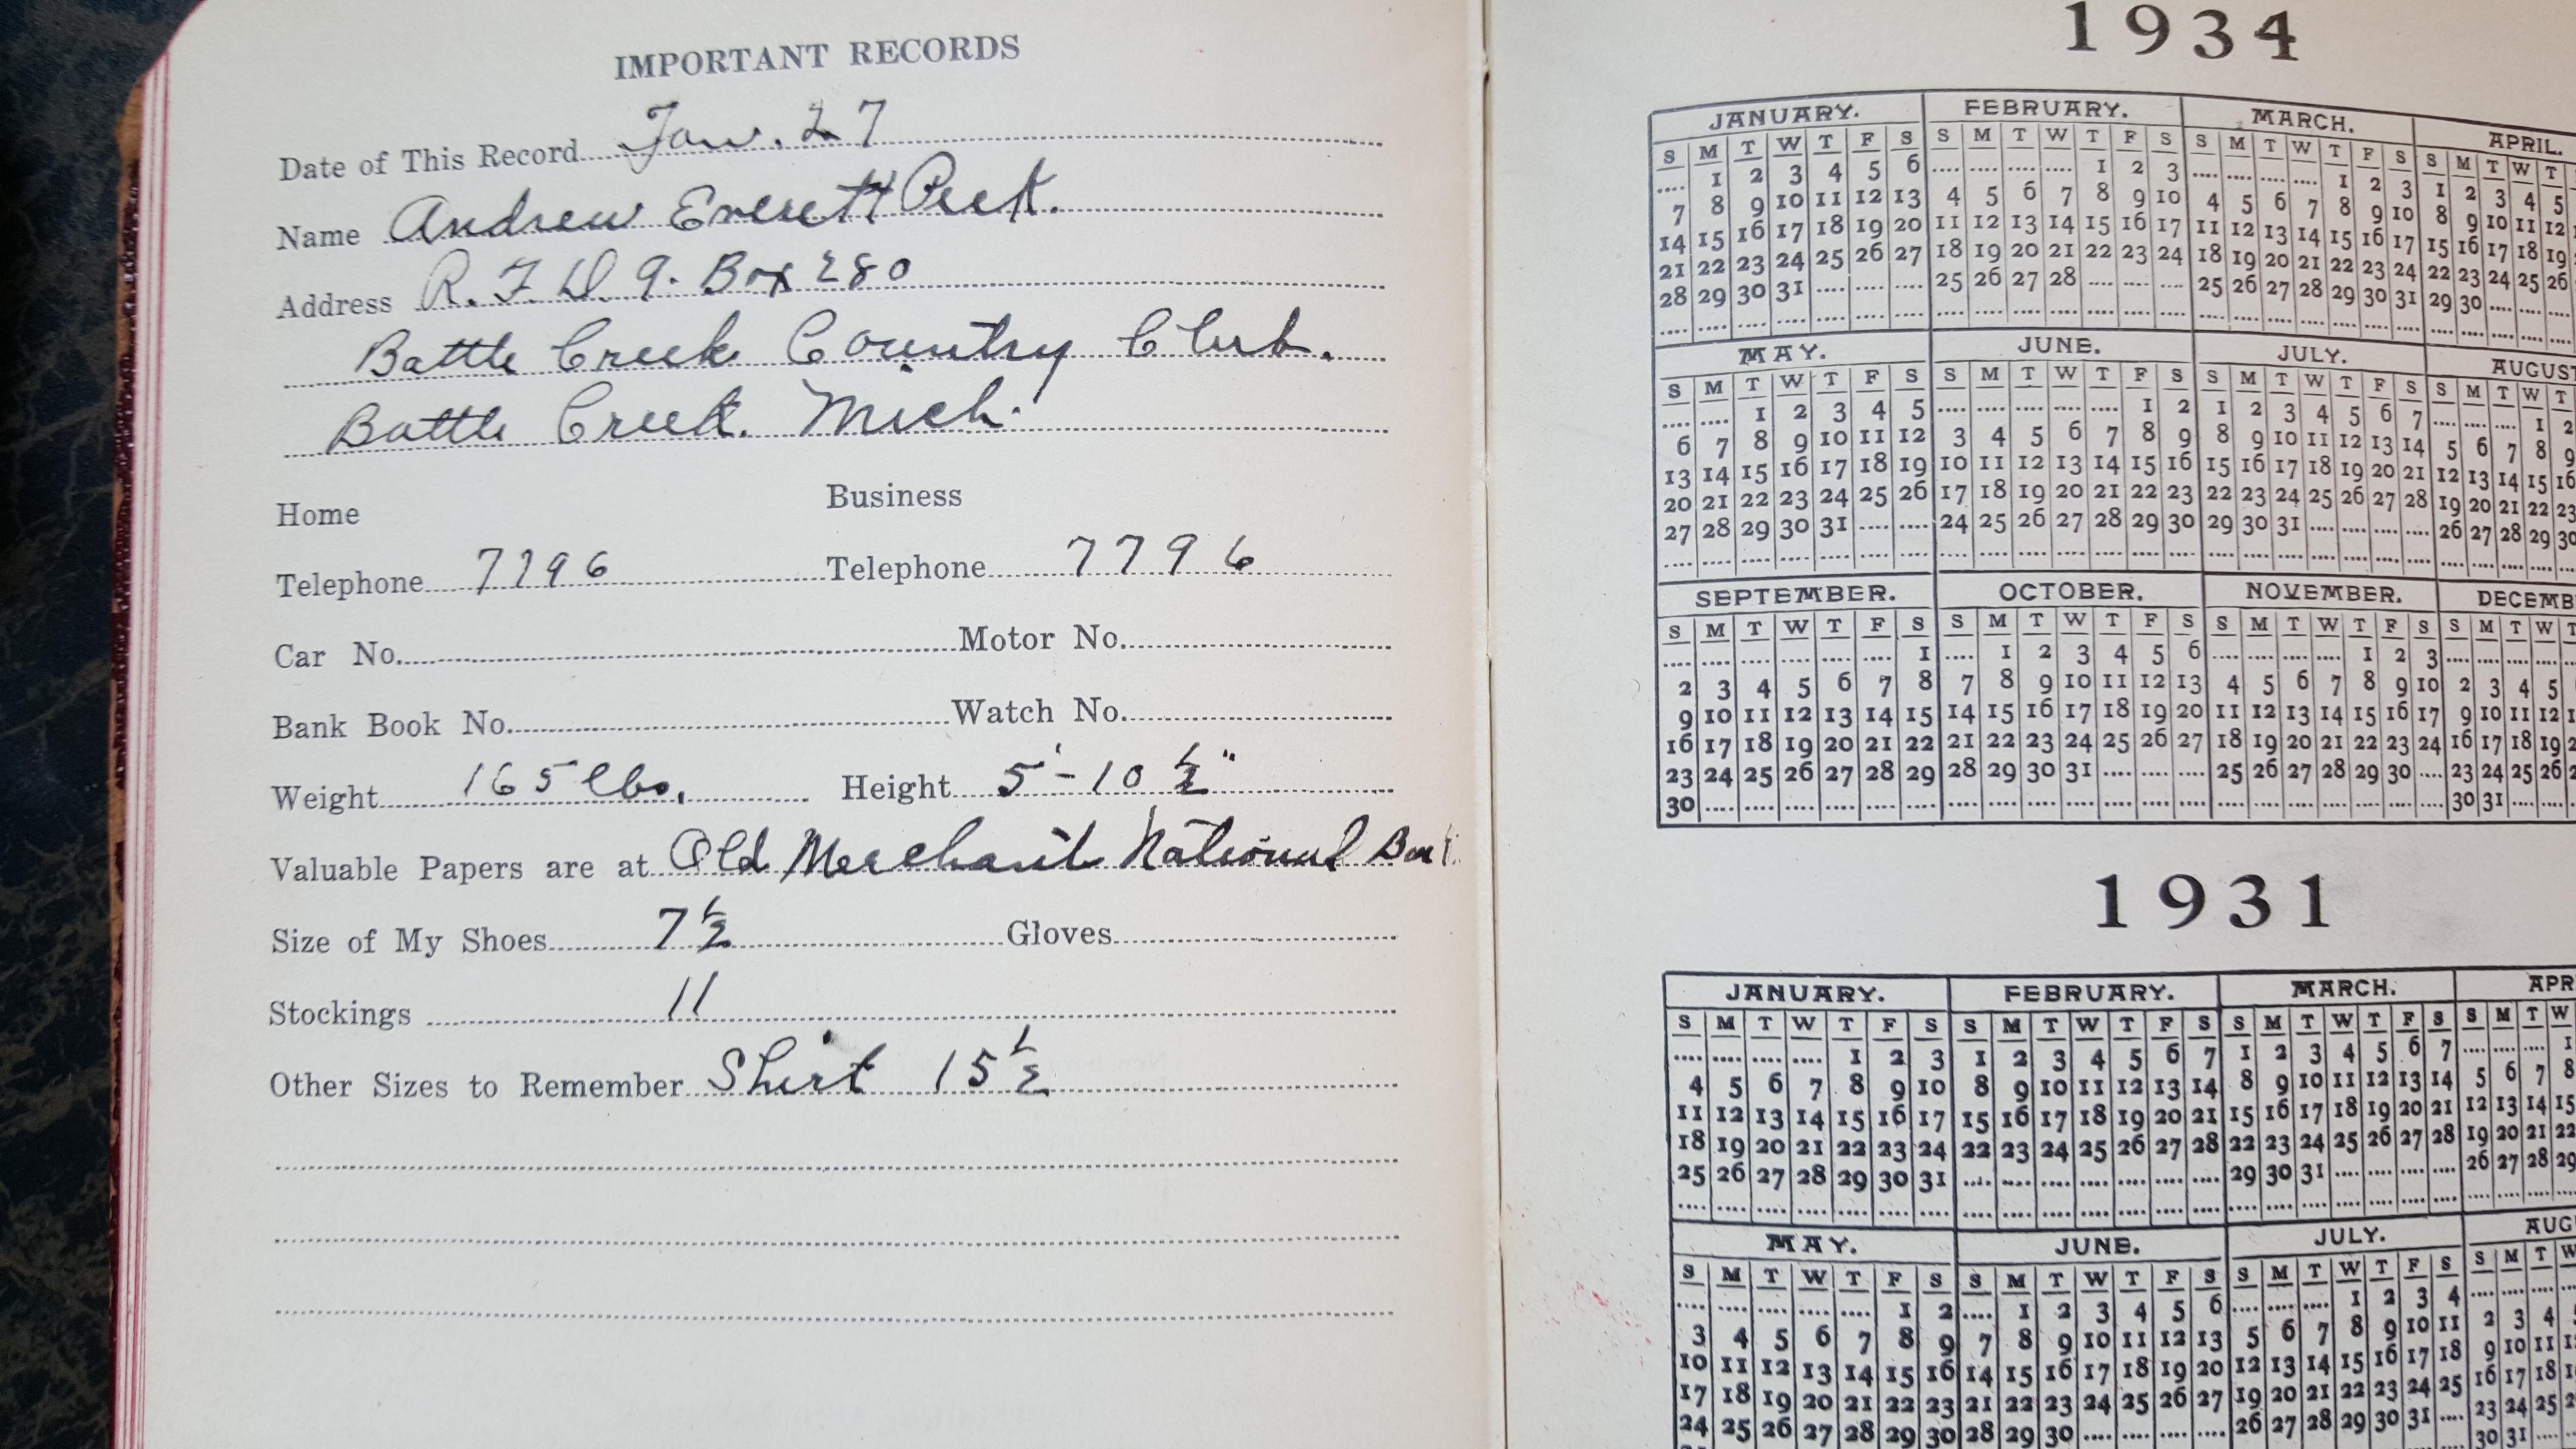 IMPORTANT RECORDS
Date of This Record Jan. 27
Name Andrew Everett Peek.
Address R. F. D. 9. Box 280
Battle Creek Country Club.
Battle Creek. Mich.
Home Business
Telephone 7796 Telephone 7796
Car No. Motor No.
Bank Book No. Watch No.
Weight 165 lbs. Height 5'-10 ½"
Valuable Papers are at Old Merchant National
Size of My Shoes 7 ½ Gloves
Stockings 11
Other Sizes to Remember Shirt 15 ½
1934
JANUARY. FEBRUARY. MARCH. APRIL.
S M T W T F S S M T W T F S S M T W T F S S M T W T
1 2 3 4 5 6 1 2 3 1 2 3 1 2 3 4 5
7 8 9 10 11 12 13 4 5 6 7 8 9 10 4 5 6 7 8 9 10 8 9 10 11 12
14 15 16 17 18 19 20 11 12 13 14 15 16 17 11 12 13 14 15 16 17 15 16 17 18 19
21 22 23 24 25 26 27 18 19 20 21 22 23 24 18 19 20 21 22 23 24 22 23 24 25 26
28 29 30 31 25 26 27 28 25 26 27 28 29 30 31 29 30
MAY. JUNE. JULY. AUGUST
S M T W T F S S M T W T F S S M T W T F S S M T W T
1 2 3 4 5 1 2 1 2 3 4 5 6 7 1 2
6 7 8 9 10 11 12 3 4 5 6 7 8 9 8 9 10 11 12 13 14 5 6 7 8 9
13 14 15 16 17 18 19 10 11 12 13 14 15 16 15 16 17 18 19 20 21 12 13 14 15 16
20 21 22 23 24 25 26 17 18 19 20 21 22 23 22 23 24 25 26 27 28 19 20 21 22 23
27 28 29 30 31 24 25 26 27 28 29 30 29 30 31 26 27 28 29 30
SEPTEMBER. OCTOBER. NOVEMBER. DECEMB
S M T W T F S S M T W T F S S M T W T F S S M T W T
1 1 2 3 4 5 6 1 2 3
2 3 4 5 6 7 8 7 8 9 10 11 12 13 4 5 6 7 8 9 10 2 3 4 5
9 10 11 12 13 14 15 14 15 16 17 18 19 20 11 12 13 14 15 16 17 9 10 11 12
16 17 18 19 20 21 22 21 22 23 24 25 26 27 18 19 20 21 22 23 24 16 17 18 19
23 24 25 26 27 28 29 28 29 30 31 25 26 27 28 29 30 23 24 25 26
30 30 31
1931
JANUARY. FEBRUARY. MARCH. APR
S M T W T F S S M T W T F S S M T W T F S S M T W
1 2 3 1 2 3 4 5 6 7 1 2 3 4 5 6 7 1
4 5 6 7 8 9 10 8 9 10 11 12 13 14 8 9 10 11 12 13 14 5 6 7 8
11 12 13 14 15 16 17 15 16 17 18 19 20 21 15 16 17 18 19 20 21 12 13 14 15
18 19 20 21 22 23 24 22 23 24 25 26 27 28 22 23 24 25 26 27 28 19 20 21 22
25 26 27 28 29 30 31 29 30 31 26 27 28 29
MAY. JUNE. JULY. AUG
S M T W T F S S M T W T F S S M T W T F S S M T W
1 2 1 2 3 4 5 6 1 2 3 4
3 4 5 6 7 8 9 7 8 9 10 11 12 13 5 6 7 8 9 10 11 2 3 4
10 11 12 13 14 15 16 14 15 16 17 18 19 20 12 13 14 15 16 17 18 9 10 11
17 18 19 20 21 22 23 21 22 23 24 25 26 27 19 20 21 22 23 24 25 16 17 18
24 25 26 27 28 29 30 28 29 30 26 27 28 29 30 31 23 24 25
30 31